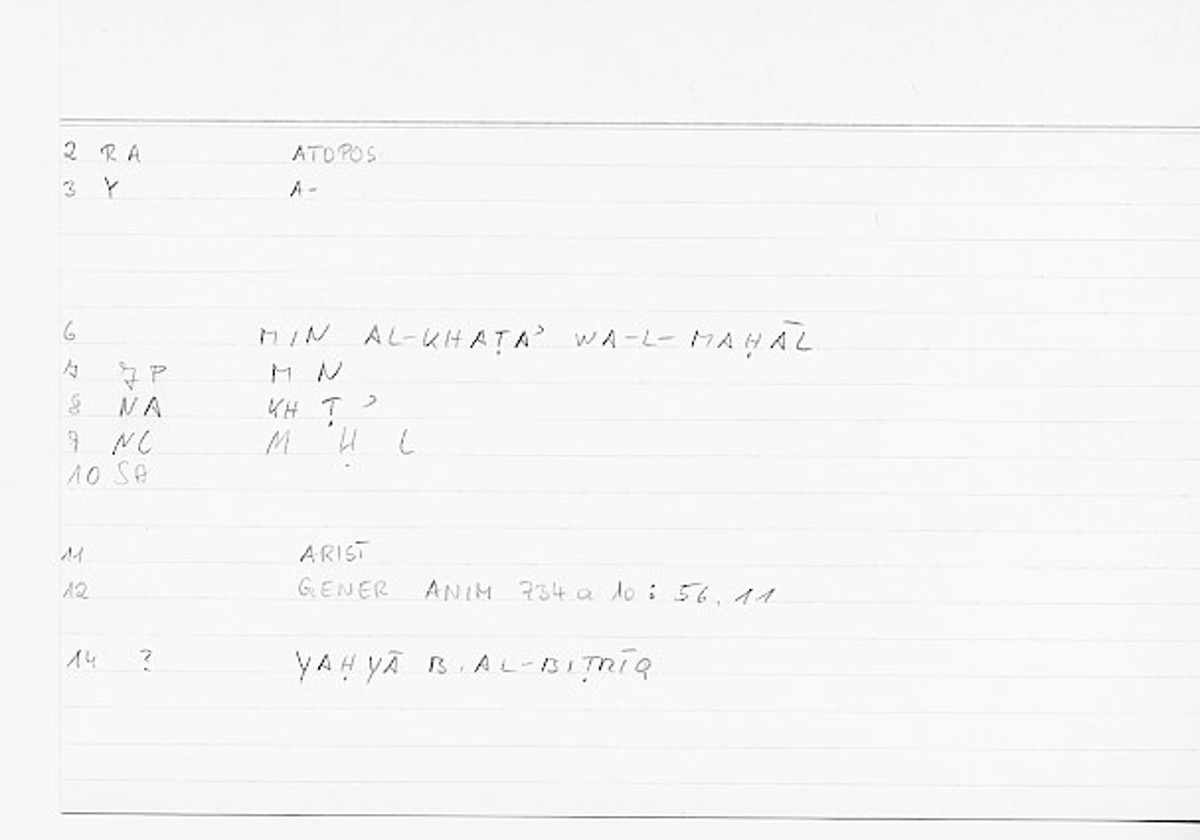 2 RA ATOPOS
3 Y A-
6 MIN AL-KHAṬAʾ WA-L-MAḤĀL
7 JP M N
8 NA KH Ṭ ʾ
9 NC M Ḥ L
10 SA
11 ARIST
12 GENER ANIM 734a10 : 56,11
14 ? YAḤYĀ B. AL-BIṬRĪQ